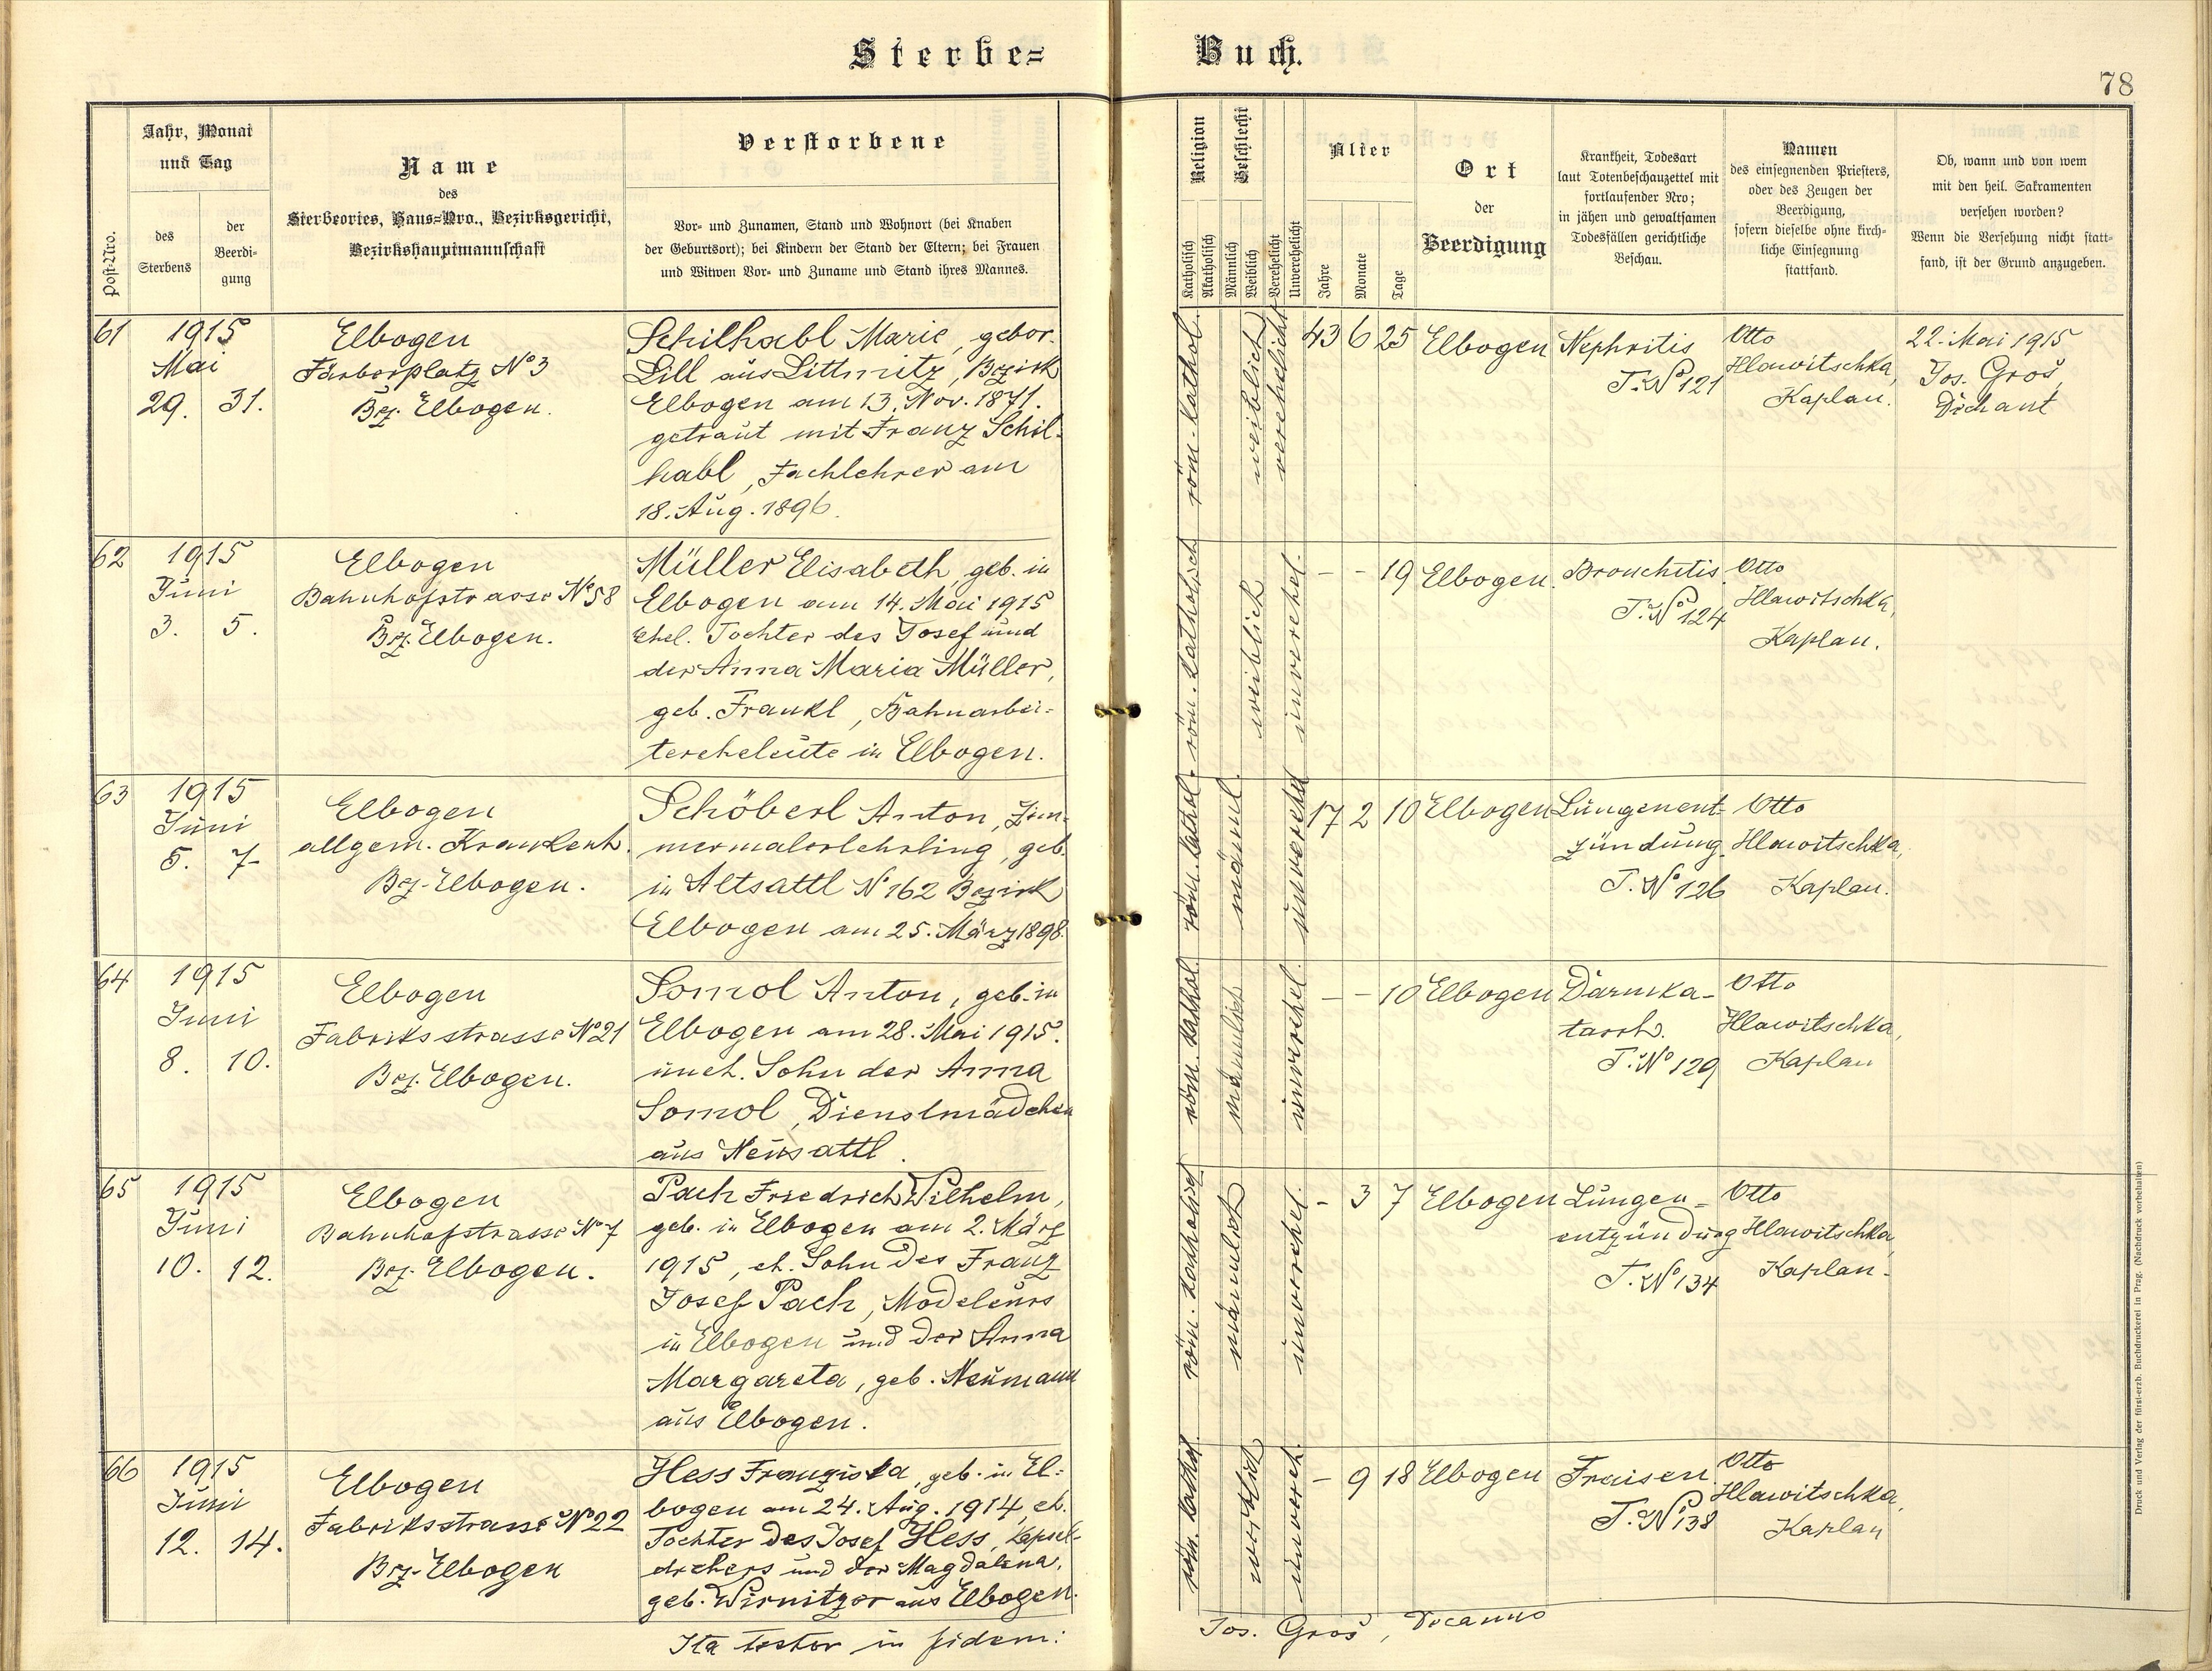 Sterbe=
Buch.
78
Post-Nro.
Jahr, Monat
und Tag
des
Sterbens
der
Beerdi-
gung
Name
des
Sterbeortes, Haus=Nro., Bezirksgericht,
Bezirkshauptmannschaft
Verstorbene
Vor- und Zunamen, Stand und Wohnort (bei Knaben
der Geburtsort); bei Kindern der Stand der Eltern; bei Frauen
und Witwen Vor- und Zuname und Stand ihres Mannes.
Religion
Katholisch
Akatholisch
Geschlecht
Männlich
Weiblich
Verehelicht
Unverehelicht
Alter
Jahre
Monate
Tage
Ort
der
Beerdigung
Krankheit, Todesart
laut Totenbeschauzettel mit
fortlaufender Nro;
in jähen und gewaltsamen
Todesfällen gerichtliche
Beschau.
Namen
des einsegnenden Priesters,
oder des Zeugen der
Beerdigung,
sofern dieselbe ohne kirch-
liche Einsegnung
stattfand.
Ob, wann und von wem
mit den heil. Sakramenten
versehen worden?
Wenn die Versehung nicht statt-
fand, ist der Grund anzugeben.
61
1915
Mai
29. 31.
Elbogen
Färberplatz No 3
Bez. Elbogen.
Schilhabl Marie, gebor.
Lill aus Littmitz, Bezirk
Elbogen am 13. Nov. 1871.
getraut mit Franz Schil-
habl, Fachlehrer am
18. Aug. 1896.
röm.-kathol.
weiblich
verehelicht
43 6 25
Elbogen
Nephritis
T. No 121
Otto
Hlawitschka,
Kaplan.
22. Mai 1915
Jos. Groš,
Dechant
62
1915
Juni
3. 5.
Elbogen
Bahnhofstrasse No 58
Bez. Elbogen.
Müller Elisabeth, geb. in
Elbogen am 14. Mai 1915
ehel. Tochter des Josef und
der Anna Maria Müller,
geb. Frankl, Bahnarbei-
tereheleute in Elbogen.
röm. katholisch
weiblich
unverehel.
- - 19
Elbogen.
Bronchitis.
T. No 124
Otto
Hlawitschka,
Kaplan.
63
1915
Juni
5. 7.
Elbogen
allgem. Krankenh.
Bez. Elbogen.
Schöberl Anton, Zim-
mermalerlehrling, geb.
in Altsattl No 162 Bezirk
Elbogen am 25. März 1898.
röm. kathol.
männl.
unverehel
17 2 10
Elbogen
Lungenent-
zündung.
T. No 126
Otto
Hlawitschka,
Kaplan.
64
1915
Juni
8. 10.
Elbogen
Fabriksstrasse No 21
Bez. Elbogen.
Somol Anton, geb. in
Elbogen am 28. Mai 1915.
uneh. Sohn der Anna
Somol, Dienstmädchen
aus Neusattl.
röm. kathol.
männlich
unverehel.
- - 10
Elbogen
Darmka-
tarrh.
T. No 129
Otto
Hlawitschka,
Kaplan
65
1915
Juni
10. 12.
Elbogen
Bahnhofstrasse No 7
Bez. Elbogen.
Pach Friedrich Wilhelm,
geb. in Elbogen am 2. März
1915, eh. Sohn des Franz
Josef Pach, Modeleurs
in Elbogen und der Anna
Margareta, geb. Neumann
aus Elbogen.
röm. katholisch
männlich
unverehel.
- 3 7
Elbogen
Lungen-
entzündung
T. No 134
Otto
Hlawitschka,
Kaplan.
66
1915
Juni
12. 14.
Elbogen
Fabriksstrasse No 22
Bez. Elbogen
Hess Franziska, geb. in El-
bogen am 24. Aug. 1914, eh.
Tochter des Josef Hess, Kapsel-
drehers und der Magdalena,
geb. Wirnitzer aus Elbogen.
röm. kathol.
weiblich
unvereh.
- 9 18
Elbogen
Fraisen.
T. No 138
Otto
Hlawitschka,
Kaplan
Ita testor in fidem:
Jos. Groš, Decanus
Druck und Verlag der fürst-erzb. Buchdruckerei in Prag. (Nachdruck vorbehalten)